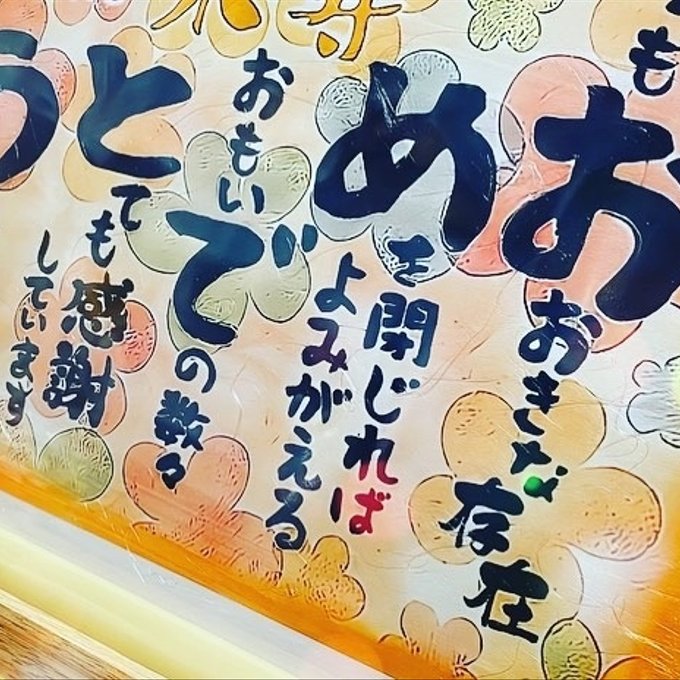 米寿
も
おおきな存在
めを閉じれば
よみがえる
おもいでの数々
とても感謝
しています
う